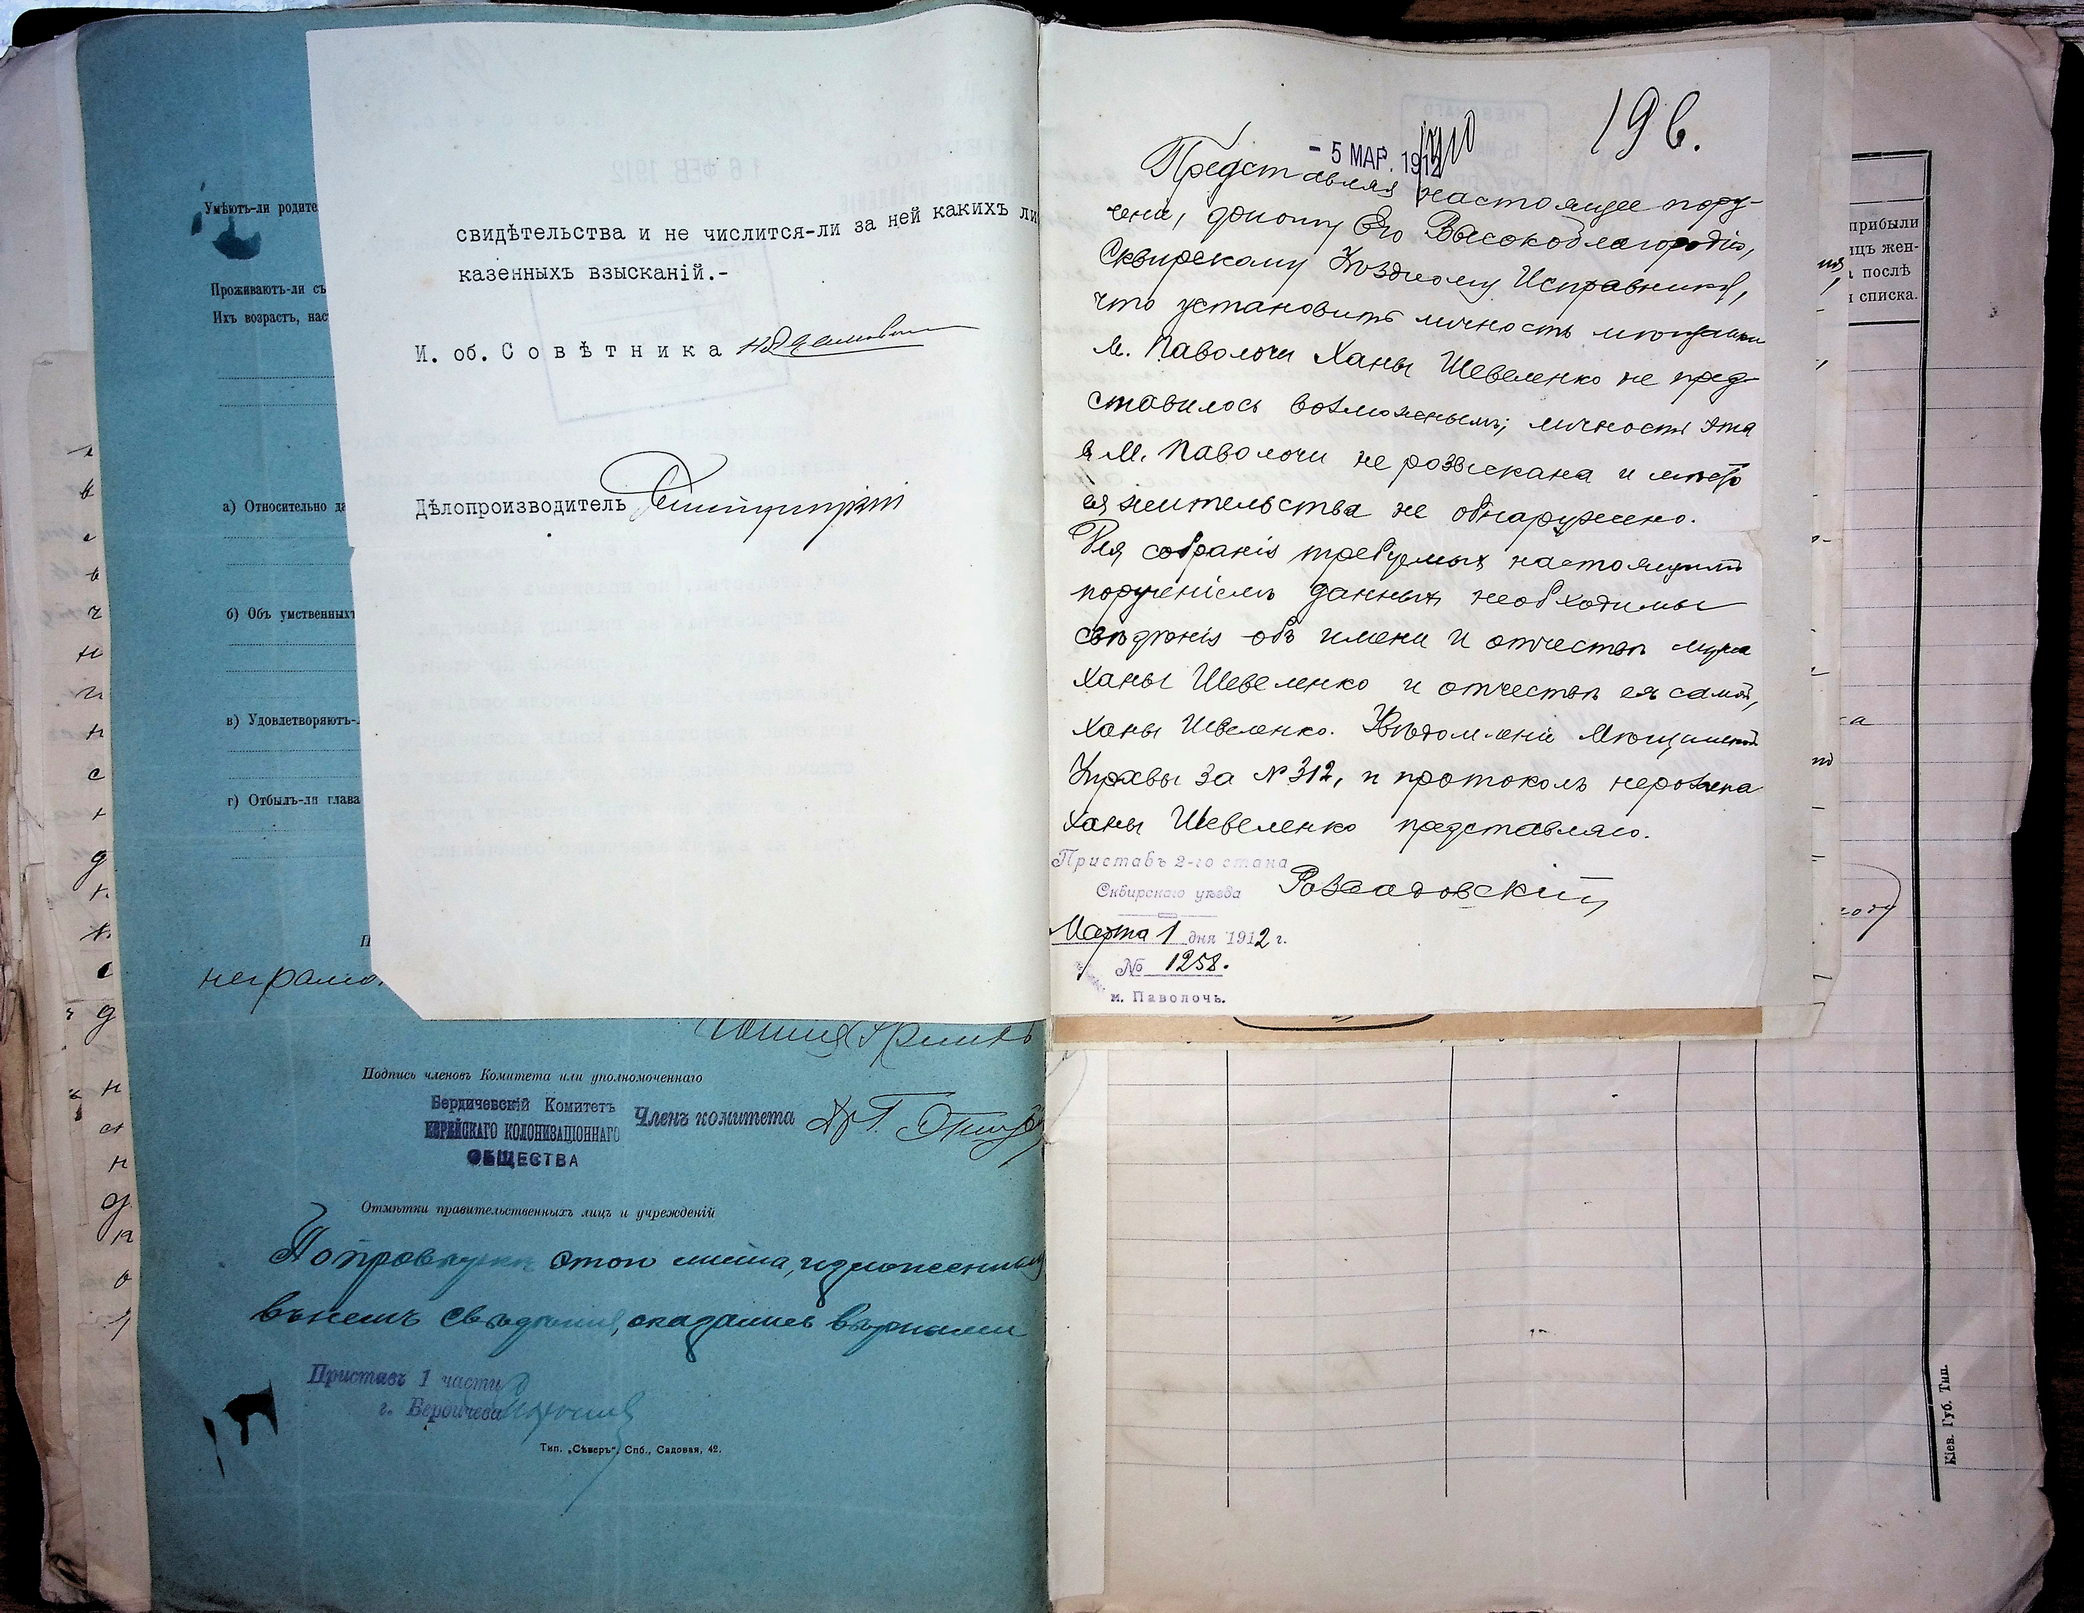 Умѣютъ-ли родите
Проживаютъ-ли съ
Ихъ возрастъ, нас
а) Относительно да
б) Объ умственныхъ
в) Удовлетворяютъ-
г) Отбылъ-ли глава
неграмо
свидѣтельства и не числится-ли за ней какихъ ли
казенныхъ взысканій.-
И. об. Совѣтника
Дѣлопроизводитель
Подпись членовъ Комитета или уполномоченнаго
Бердичевскій Комитетъ
ЕВРЕЙСКАГО КОЛОНИЗАЦІОННАГО
ОБЩЕСТВА
Членъ комитета
Отмѣтки правительственныхъ лицъ и учрежденій
По провѣркѣ этого листа, изложенныя
въ немъ свѣдѣнія, оказались вѣрными
Приставъ 1 части
г. Бердичева
Тип. „Сѣверъ“, Спб., Садовая, 42.
19 в.
- 5 МАР. 1912
Представляя настоящее пору-
чені, доношу Его Высокоблагородію,
Сквирскому Уѣздному Исправнику,
что установить личность мѣщанки
м. Паволочи Ханы Шевеленко не пред-
ставилось возможнымъ; личность эта
в м. Паволочи не розыскана и мѣсто
ея жительства не обнаружено.
Для собранія требуемыхъ настоящимъ
порученіемъ данныхъ необходимы
свѣдѣнія объ имени и отчествѣ мужа
Ханы Шевеленко и отчествѣ ея самой,
Ханы Шевеленко. Увѣдомленіе Мѣщанской
Управы за № 312, и протоколъ нерозыска
Ханы Шевеленко представляю.
Приставъ 2-го стана
Сквирскаго уѣзда
Марта 1 дня 1912 г.
№ 1258.
м. Паволочь.
прибыли
ицъ жен-
послѣ
списка.
Кіев. Губ. Тип.